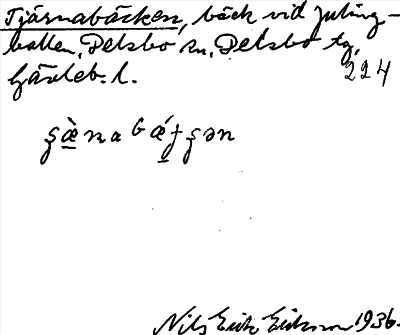 Tjärnabäcken, bäck vid Juling-
vallen, Delsbo sn, Delsbo tg,
Gävleb. l. 224
ʂæ̀nabǽʈʂən
Nils Erik Eriksson 1936.